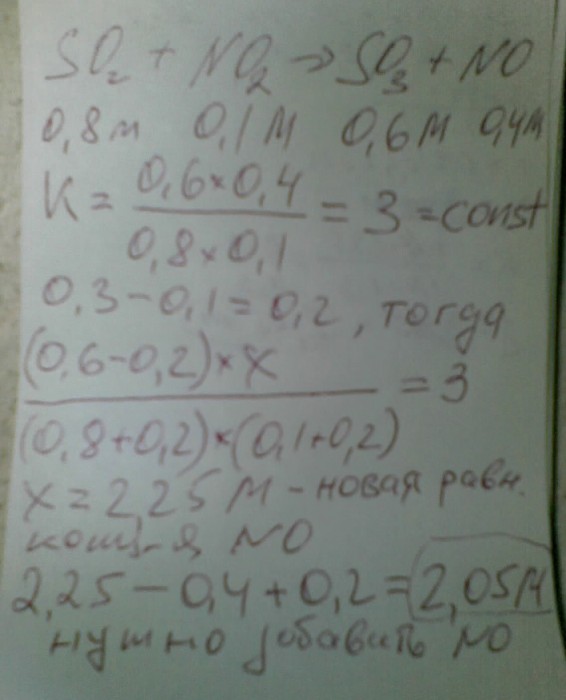 SO₂ + NO₂ → SO₃ + NO
0,8м 0,1М 0,6М 0,4М
K = 0,6×0,4 / 0,8×0,1 = 3 = const
0,3-0,1=0,2, тогда
(0,6-0,2)×X / (0,8+0,2)×(0,1+0,2) = 3
X = 2,25 М - новая равн.
концц-я NO
2,25-0,4+0,2=2,05М
нужно добавить NO